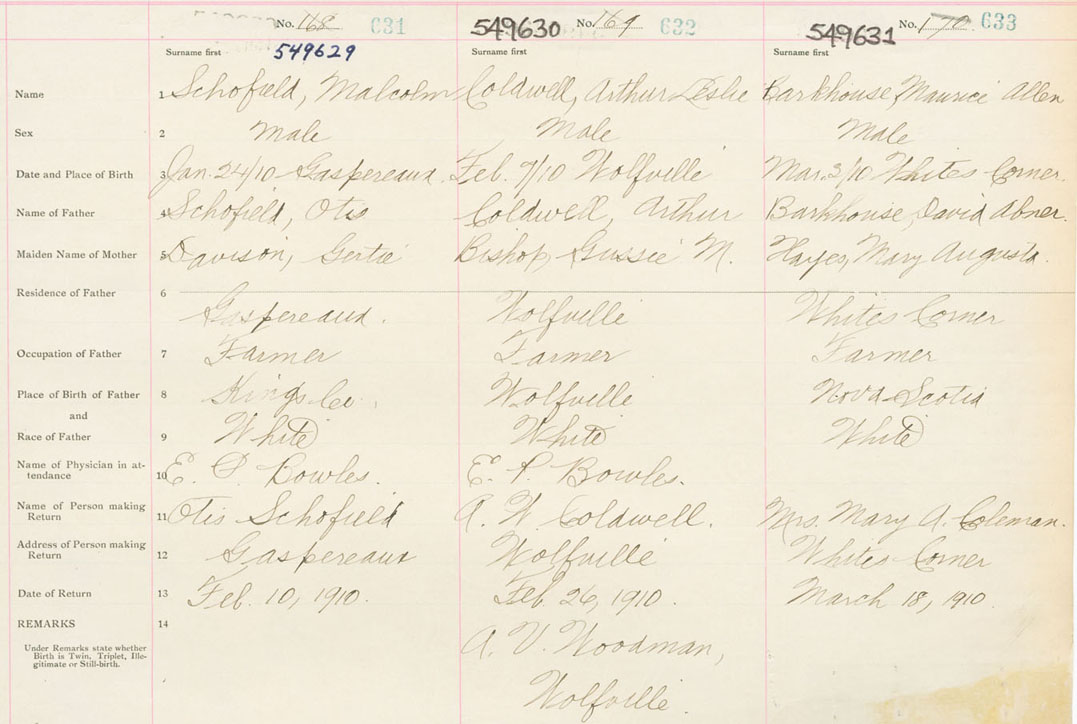 No. 168 631 549630 No. 169 632 549631 No. 170 633
Surname first 549629 Surname first Surname first
Name 1 Schofield, Malcolm Coldwell, Arthur Leslie Barkhouse, Maurice Allen
Sex 2 Male Male Male
Date and Place of Birth 3 Jan. 24/10 Gaspereaux. Feb. 7/10 Wolfville Mar. 3/10 Whites Corner.
Name of Father 4 Schofield, Otis Coldwell, Arthur Barkhouse, David Abner.
Maiden Name of Mother 5 Davison, Gertie Bishop, Gussie M. Hayes, Mary Augusta.
Residence of Father 6
Gaspereaux. Wolfville Whites Corner
Occupation of Father 7 Farmer Farmer Farmer
Place of Birth of Father 8 Kings Co. Wolfville Nova Scotia
and
Race of Father 9 White White White
Name of Physician in at-
tendance 10 E. P. Bowles. E. P. Bowles.
Name of Person making
Return 11 Otis Schofield A. W. Coldwell. Mrs. Mary A. Coleman.
Address of Person making
Return 12 Gaspereaux Wolfville Whites Corner
Date of Return 13 Feb. 10, 1910. Feb. 26, 1910. March 18, 1910.
REMARKS 14
Under Remarks state whether
Birth is Twin, Triplet, Ille-
gitimate or Still-birth.
A. V. Woodman,
Wolfville.